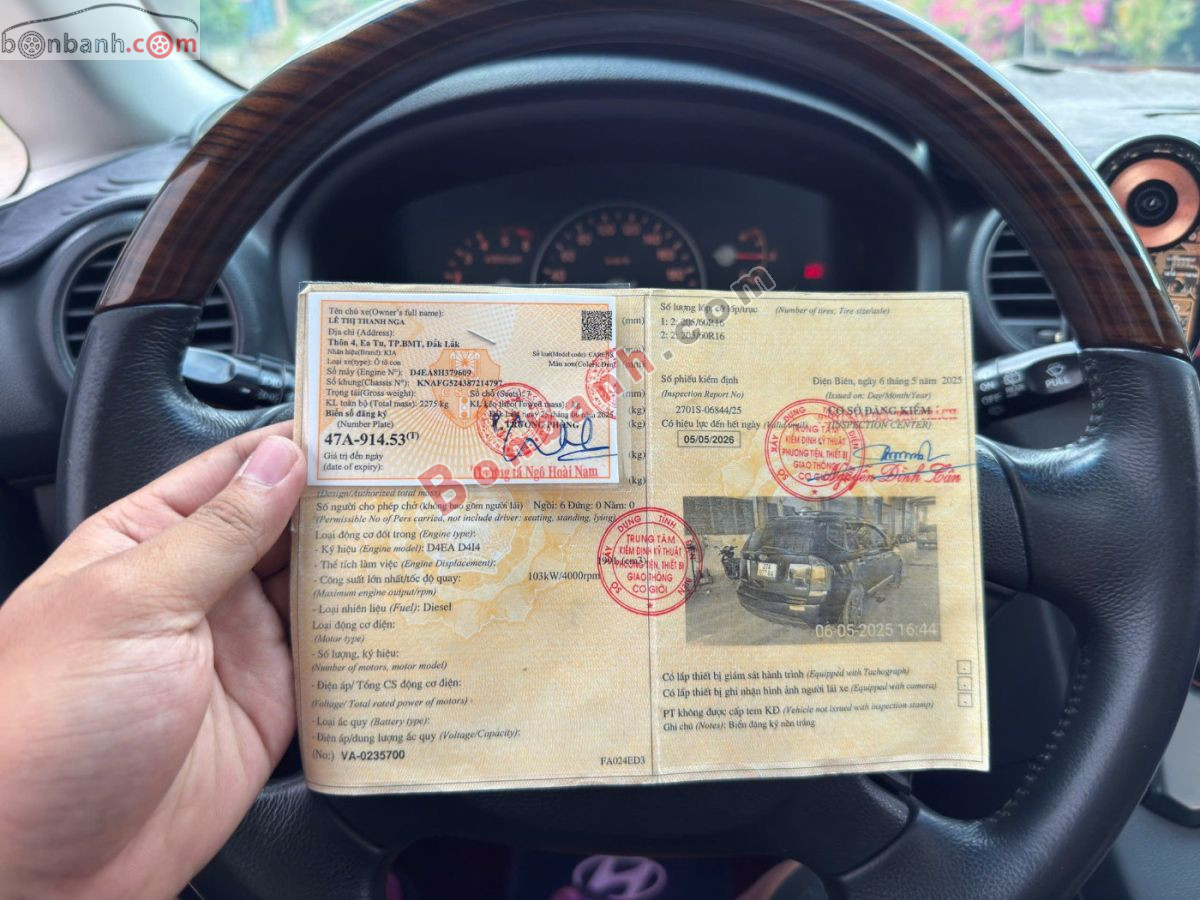 bonbanh.com
Tên chủ xe(Owner's full name):
LÊ THỊ THANH NGA
Địa chỉ (Address):
Thôn 4, Ea Tu, TP.BMT, Đắk Lắk
Nhãn hiệu(Brand): KIA
Số loại(Model code): CARENS
Loại xe(type): Ô tô con
Màu sơn(Color): Đen
Số máy (Engine N°): D4EA8H379609
Số khung(Chassis N°): KNAFG524387214797
Trọng tải(Gross weight):
Số chỗ (Seats): 7
KL toàn bộ (Total mass): 2275 kg
KL kéo theo(Towed mass):
Biển số đăng ký
(Number Plate)
TRƯỞNG PHÒNG
47A-914.53(T)
Giá trị đến ngày
(date of expiry):
Thượng tá Ngô Hoài Nam
(mm)
(mm)
(mm)
(kg)
(kg)
(kg)
(Design/Authorized total mass)
Số người cho phép chở (không bao gồm người lái) Ngồi: 6 Đứng: 0 Nằm: 0
(Permissible No of Pers carried, not include driver: seating, standing, lying)
Loại động cơ đốt trong (Engine type):
- Ký hiệu (Engine model): D4EA D4I4
- Thể tích làm việc (Engine Displacement): 1991 (cm3)
- Công suất lớn nhất/tốc độ quay: 103kW/4000rpm
(Maximum engine output/rpm)
- Loại nhiên liệu (Fuel): Diesel
Loại động cơ điện:
(Motor type)
- Số lượng, ký hiệu:
(Number of motors, motor model)
- Điện áp/ Tổng CS động cơ điện:
(Voltage/ Total rated power of motors) -
- Loại ắc quy (Battery type):
- Điện áp/dung lượng ắc quy (Voltage/Capacity):
(No:) VA-0235700
FA024ED3
Số lượng lốp, cỡ lốp/trục (Number of tires; Tire size/axle)
1: 2; 205/60R16
2: 2; 205/60R16
Số phiếu kiểm định
(Inspection Report No)
2701S-06844/25
Có hiệu lực đến hết ngày
05/05/2026
Điện Biên, ngày 6 tháng 5 năm 2025
(Issued on: Day/Month/Year)
CƠ SỞ ĐĂNG KIỂM
(INSPECTION CENTER)
TRUNG TÂM
KIỂM ĐỊNH KỸ THUẬT
PHƯƠNG TIỆN, THIẾT BỊ
GIAO THÔNG
CƠ GIỚI
Nguyễn Đình Tân
SỞ XÂY DỰNG TỈNH ĐIỆN BIÊN
TRUNG TÂM
KIỂM ĐỊNH KỸ THUẬT
PHƯƠNG TIỆN, THIẾT BỊ
GIAO THÔNG
CƠ GIỚI
06-05-2025 16:44
Có lắp thiết bị giám sát hành trình (Equipped with Tachograph)
Có lắp thiết bị ghi nhận hình ảnh người lái xe (Equipped with camera)
PT không được cấp tem KĐ (Vehicle not issued with inspection stamp)
Ghi chú (Notes): Biển đăng ký nền trắng
Bonbanh.com
PULL